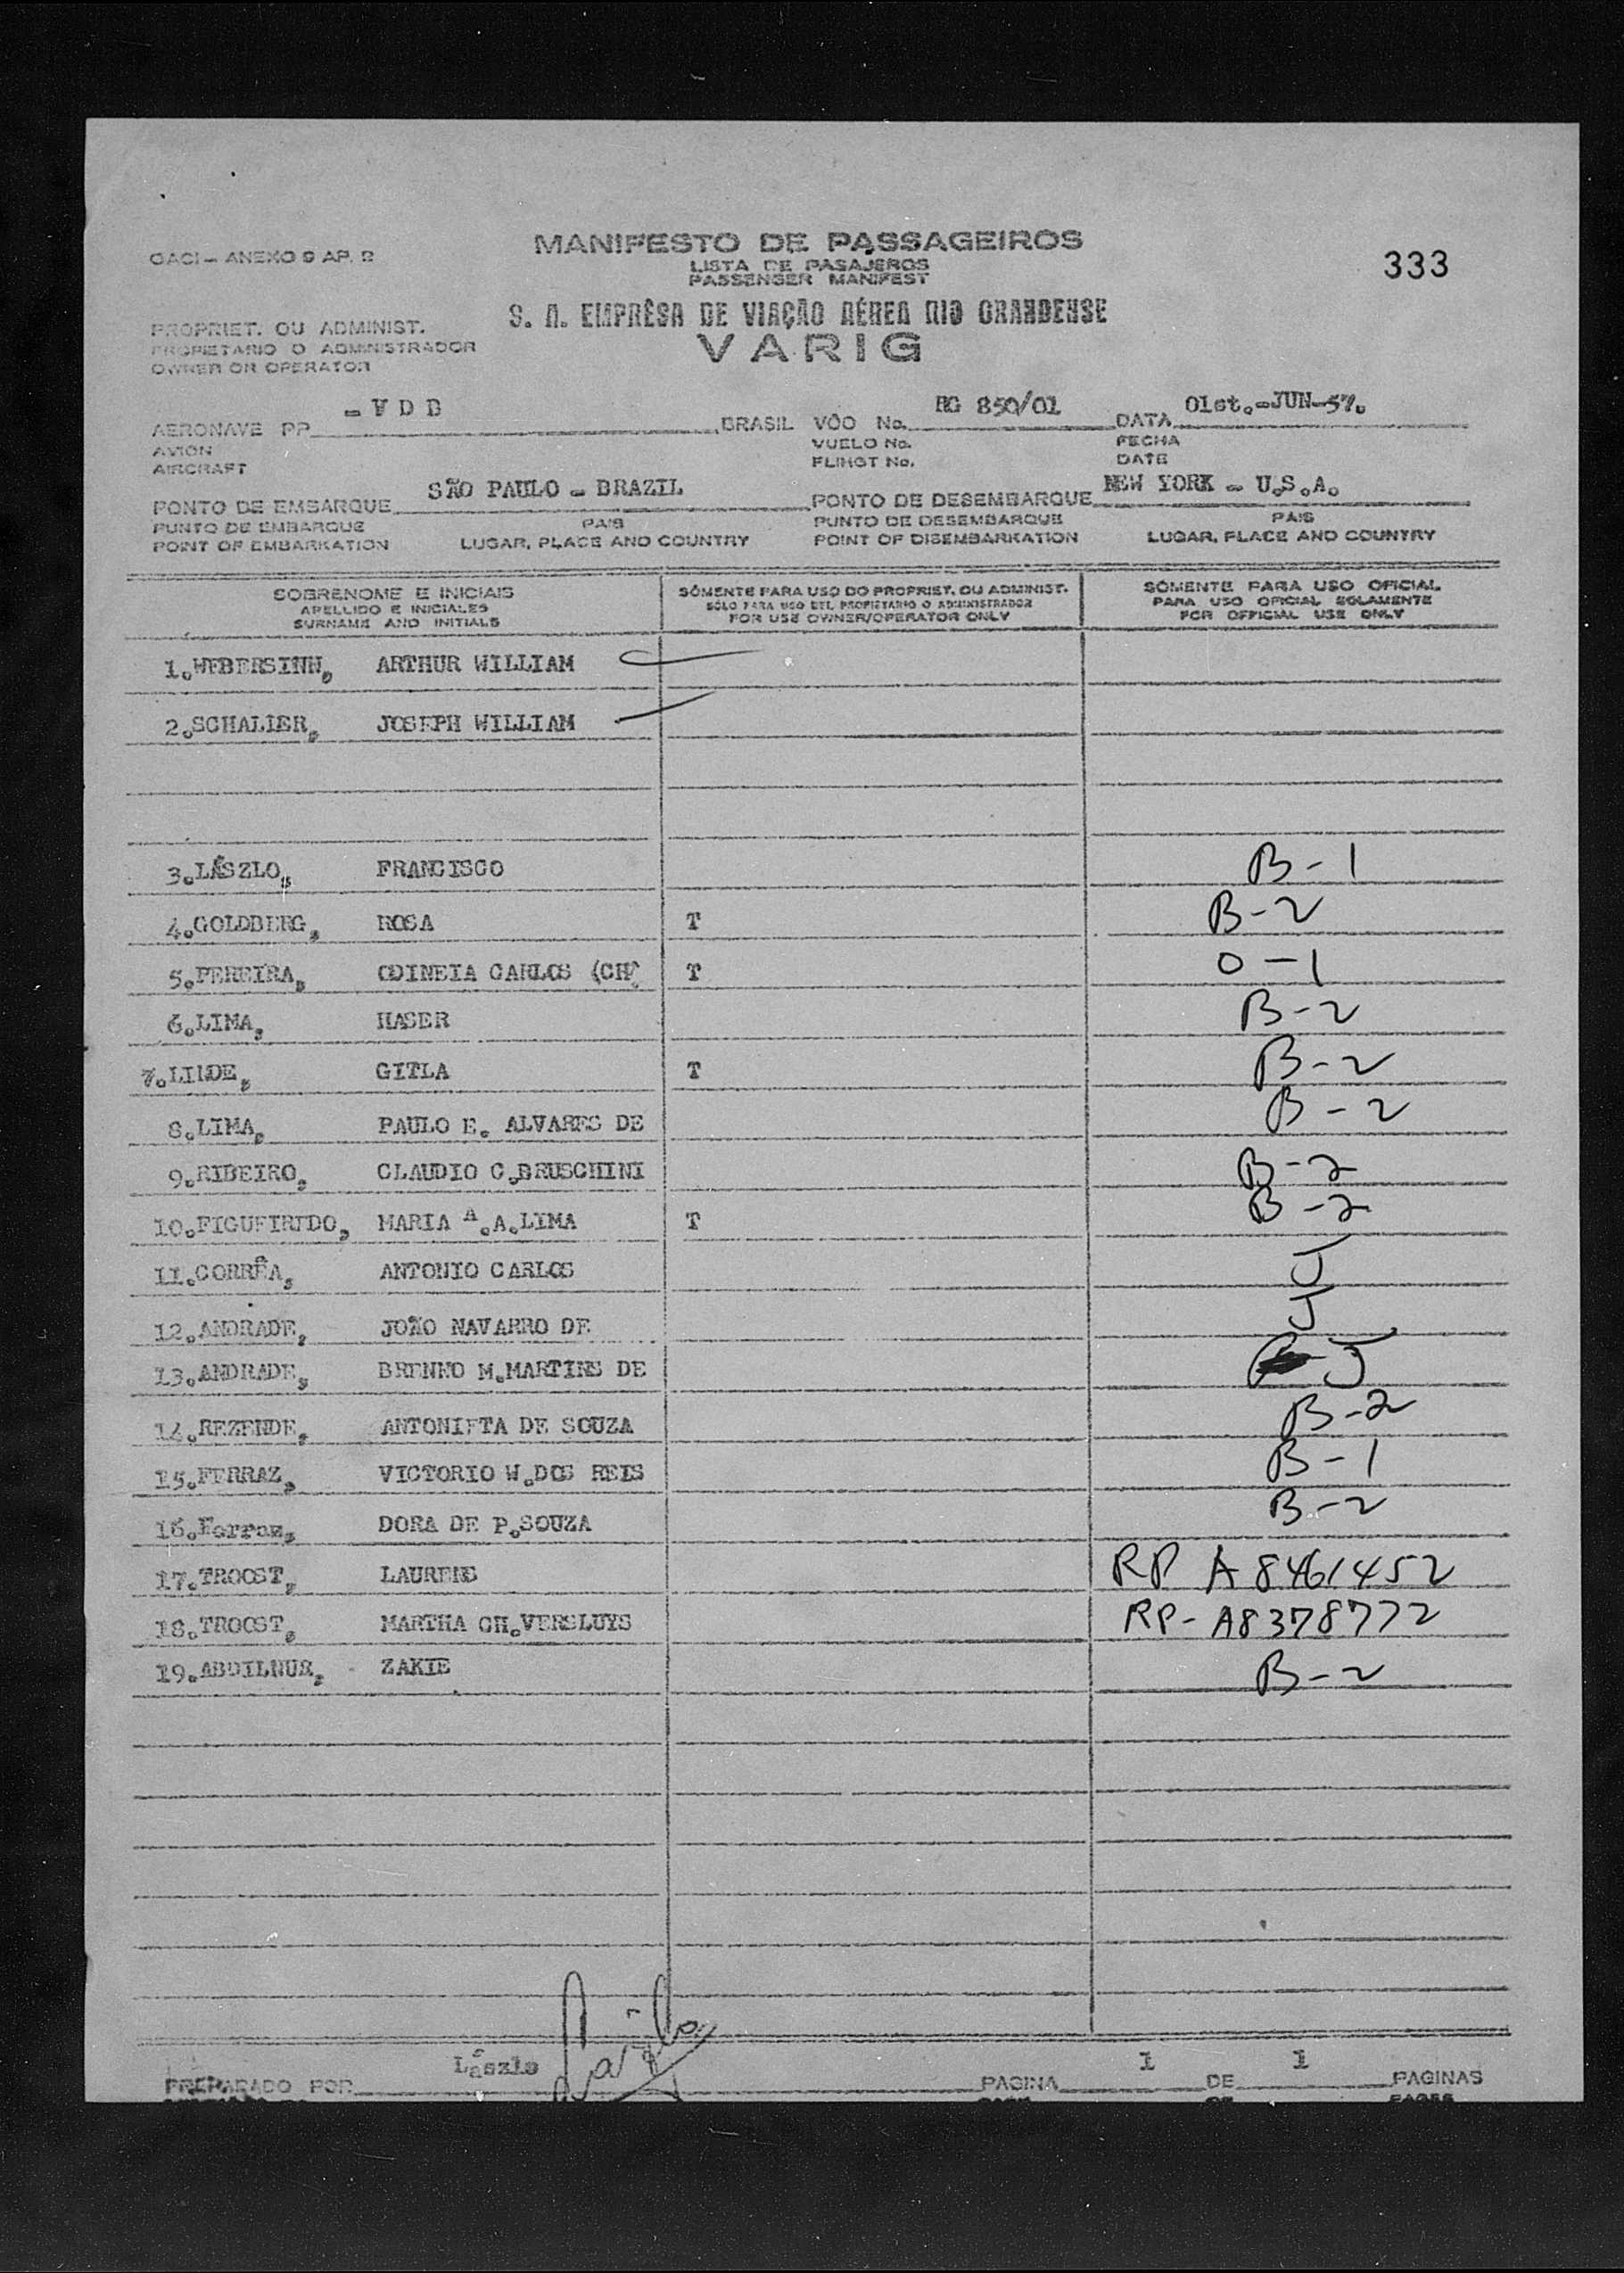 OACI - ANEXO 9 AP. 2
MANIFESTO DE PASSAGEIROS
LISTA DE PASAJEROS
PASSENGER MANIFEST
333
S. A. EMPRÊSA DE VIAÇÃO AÉREA RIO GRANDENSE
VARIG
PROPRIET. OU ADMINIST.
PROPIETARIO O ADMINISTRADOR
OWNER OR OPERATOR
AERONAVE PP - VDB BRASIL VÔO No. RG 850/01 DATA 01st.-JUN-57.
AVION VUELO No. FECHA
AIRCRAFT FLIHGT No. DATE
PONTO DE EMBARQUE SÃO PAULO - BRAZIL PONTO DE DESEMBARQUE NEW YORK - U.S.A.
PUNTO DE EMBARQUE PAIS PUNTO DE DESEMBARQUE PAIS
POINT OF EMBARKATION LUGAR, PLACE AND COUNTRY POINT OF DISEMBARKATION LUGAR, PLACE AND COUNTRY
SOBRENOME E INICIAIS SÓMENTE PARA USO DO PROPRIET. OU ADMINIST. SÓMENTE PARA USO OFICIAL
APELLIDO E INICIALES SÓLO PARA USO DEL PROPIETARIO O ADMINISTRADOR PARA USO OFICIAL SOLAMENTE
SURNAME AND INITIALS FOR USE OWNER/OPERATOR ONLY FOR OFFICIAL USE ONLY
1.WEBERSINN, ARTHUR WILLIAM
2.SCHALIER, JOSEPH WILLIAM
3.LÁSZLO, FRANCISCO B-1
4.GOLDBERG, ROSA T B-2
5.PEREIRA, ODINEIA CARLOS (CH) T O-1
6.LIMA, HASER B-2
7.LINDE, GITLA T B-2
8.LIMA, PAULO E. ALVARES DE B-2
9.RIBEIRO, CLAUDIO C.BRUSCHINI B-2
10.FIGUEIREDO, MARIA A.A.LIMA T B-2
11.CORRÊA, ANTONIO CARLOS J
12.ANDRADE, JOÃO NAVARRO DE J
13.ANDRADE, BRENNO M.MARTINS DE J
14.REZENDE, ANTONIETA DE SOUZA B-2
15.FERRAZ, VICTORIO W.DOS REIS B-1
16.Ferraz, DORA DE P.SOUZA B-2
17.TROOST, LAURENS RP A8461452
18.TROOST, MARTHA CH.VERSLUYS RP-A8378772
19.ABDILNUR, ZAKIE B-2
PREPARADO POR László PAGINA 1 DE 1 PAGINAS